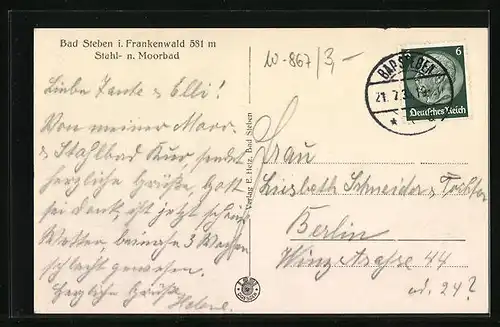 Bad Steben i. Frankenwald 581 m
Stahl- n. Moorbad
10-867/3,-
BAD STEBEN
21. 7. 3
6
Deutsches Reich
Liebe Tante & Elli!
Von meiner Moor
& Stahlbad Kur, sendet
herzliche Grüße, Gott
sei dank, ist jetzt schön
Wetter, beinahe 3 Wochen
schlecht gewesen.
Herzliche Grüße
Helene.
Verlag P. Herz, Bad Steben
Frau
Lisbeth Schneider & Tochter
Berlin
Winzstraße 44
od. 24?